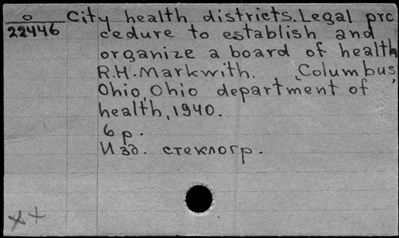 o City health districts. Legal pro
22446 cedure to establish and
organize a board of health
R.H. Markwith. Columbus,
Ohio, Ohio department of
health, 1940.
6 p.
Изд. стеклогр.